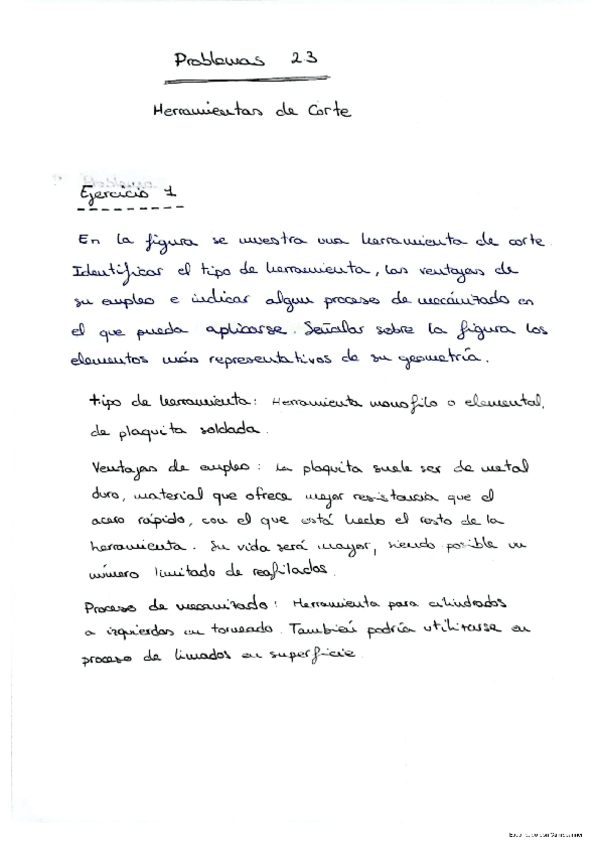 Problemas 23
Herramientas de Corte
Problema
Ejercicio 1
En la figura se muestra una herramienta de corte.
Identificar el tipo de herramienta, las ventajas de
su empleo e indicar algun proceso de mecánizado en
el que pueda aplicarse. Señalar sobre la figura los
elementos más representativos de su geometría.
tipo de herramienta: Herramienta monofilo o elemental,
de plaquita soldada.
Ventajas de empleo: La plaquita suele ser de metal
duro, material que ofrece mejor resistencia que el
acero rápido, con el que está hecho el resto de la
herramienta. Su vida será mayor, siendo posible un
número limitado de reafilados.
Proceso de mecanizado: Herramienta para cilindrados
a izquierdas en torneado. También podría utilizarse en
proceso de limados en superficie.